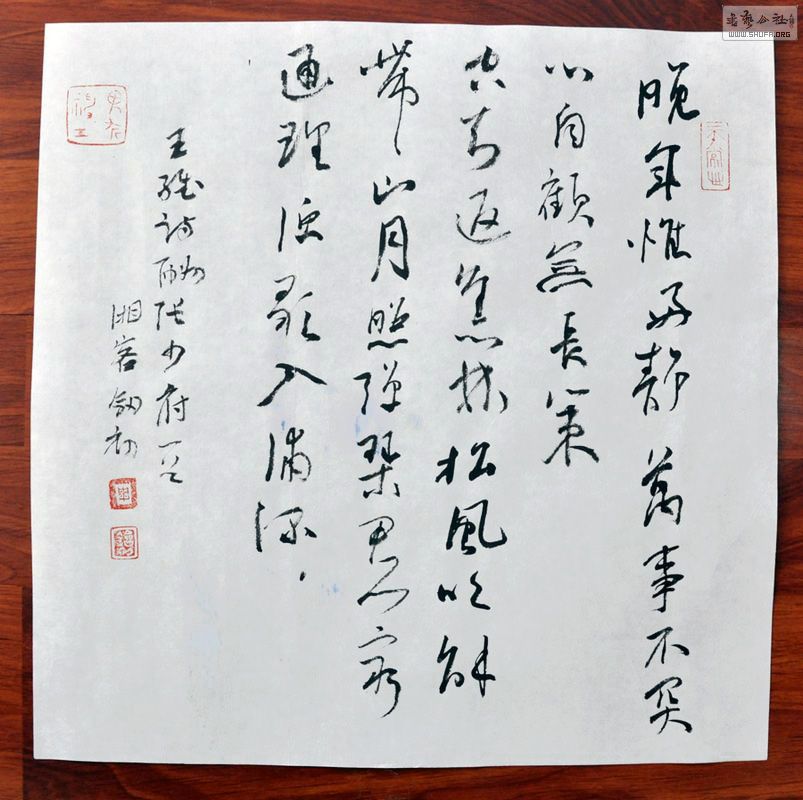 晚年惟好靜萬事不関
心自顧無長策
空知返舊林松風吹解
帶山月照彈琴君問窮
通理漁歌入浦深
王維詩酬張少府一首
湘客
書藝公社
WWW.SHUFA.ORG